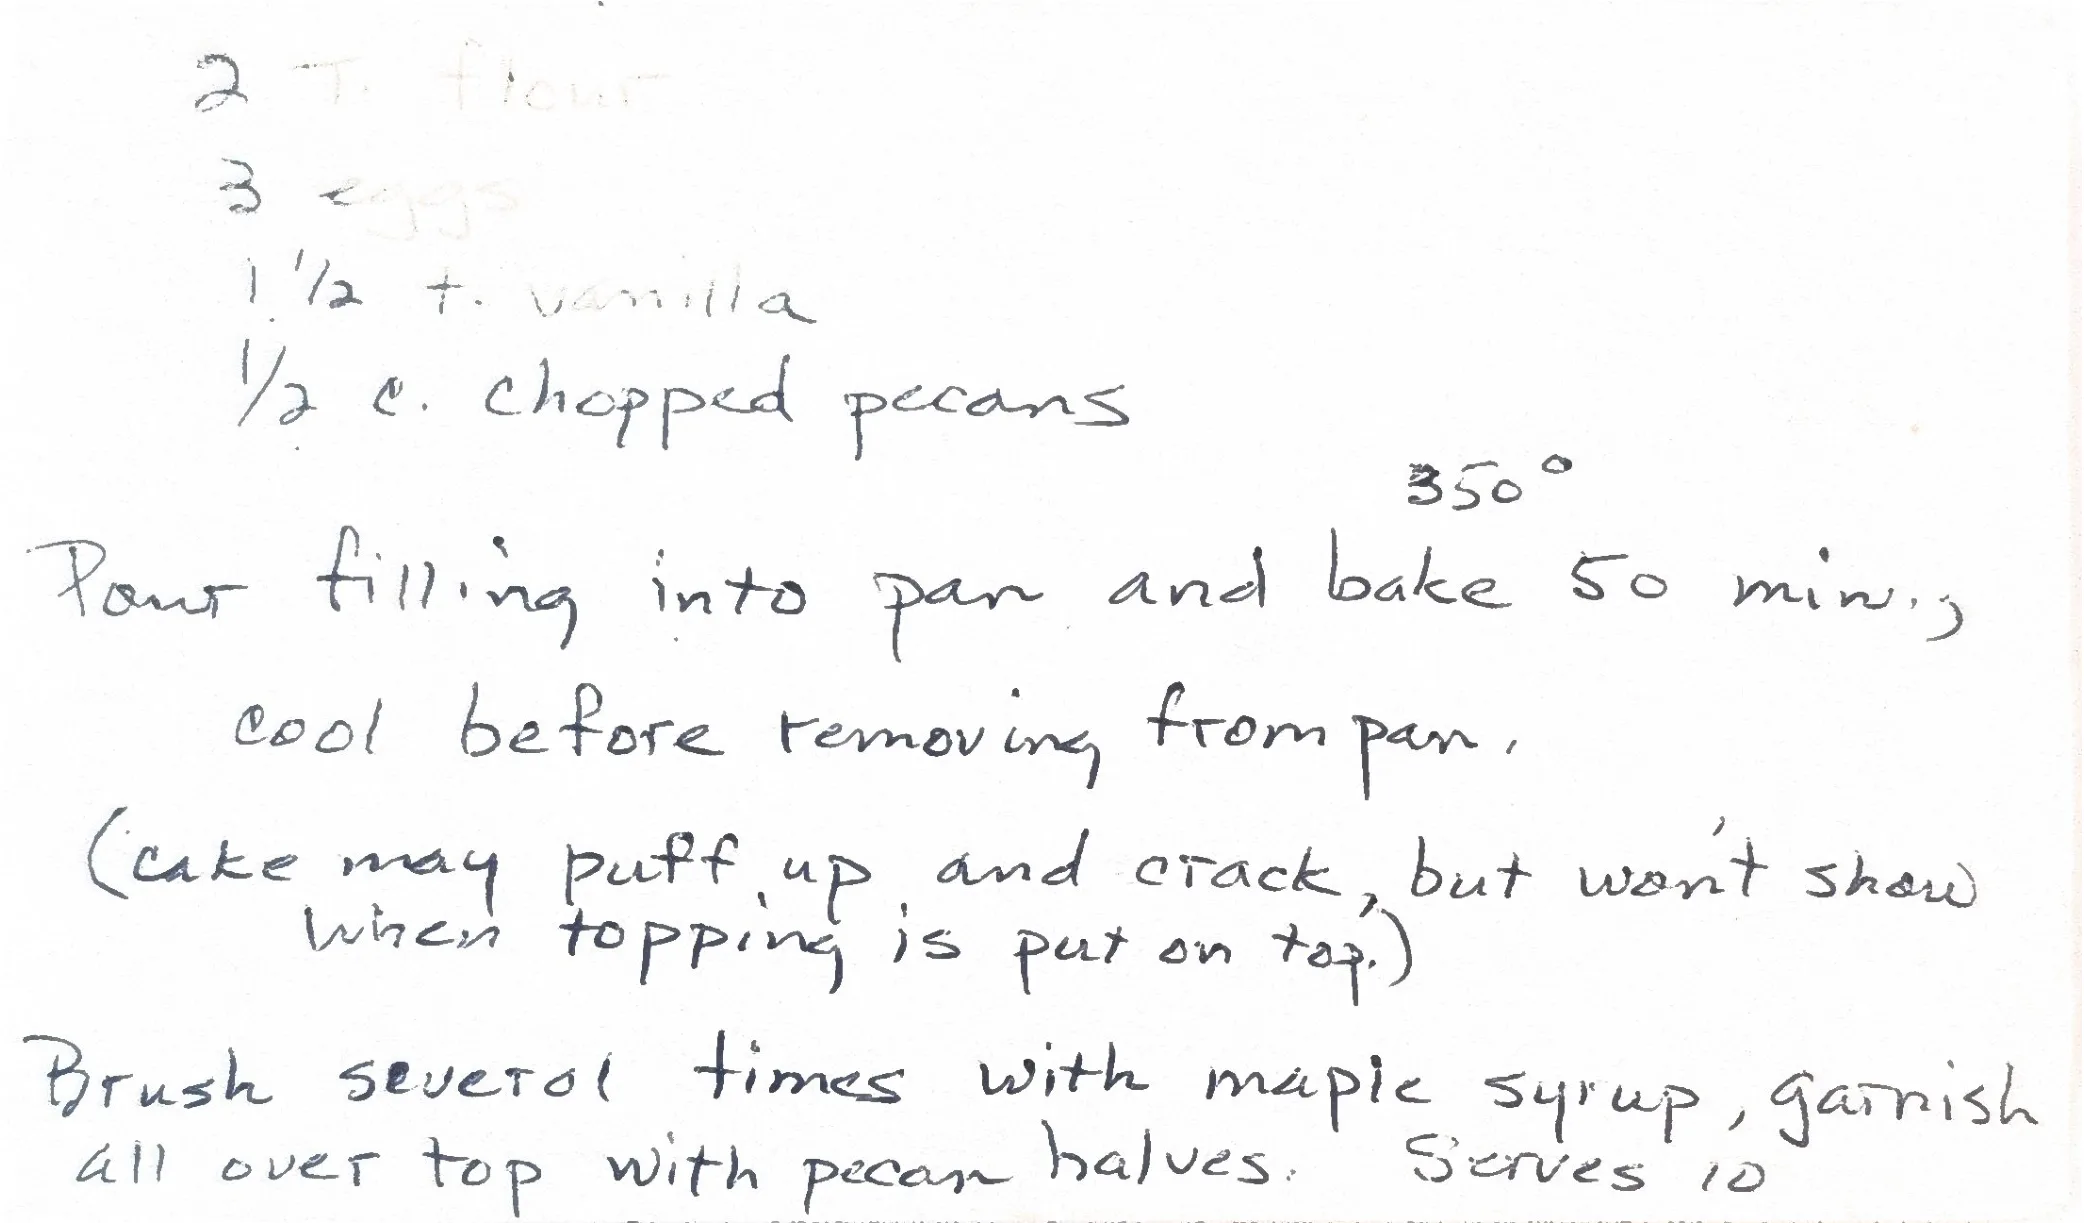 2 T. flour
3 eggs
1 1/2 t. vanilla
1/2 c. chopped pecans
350°
Pour filling into pan and bake 50 min.,
cool before removing from pan.
(cake may puff up and crack, but won't show
when topping is put on top.)
Brush several times with maple syrup, garnish
all over top with pecan halves. Serves 10